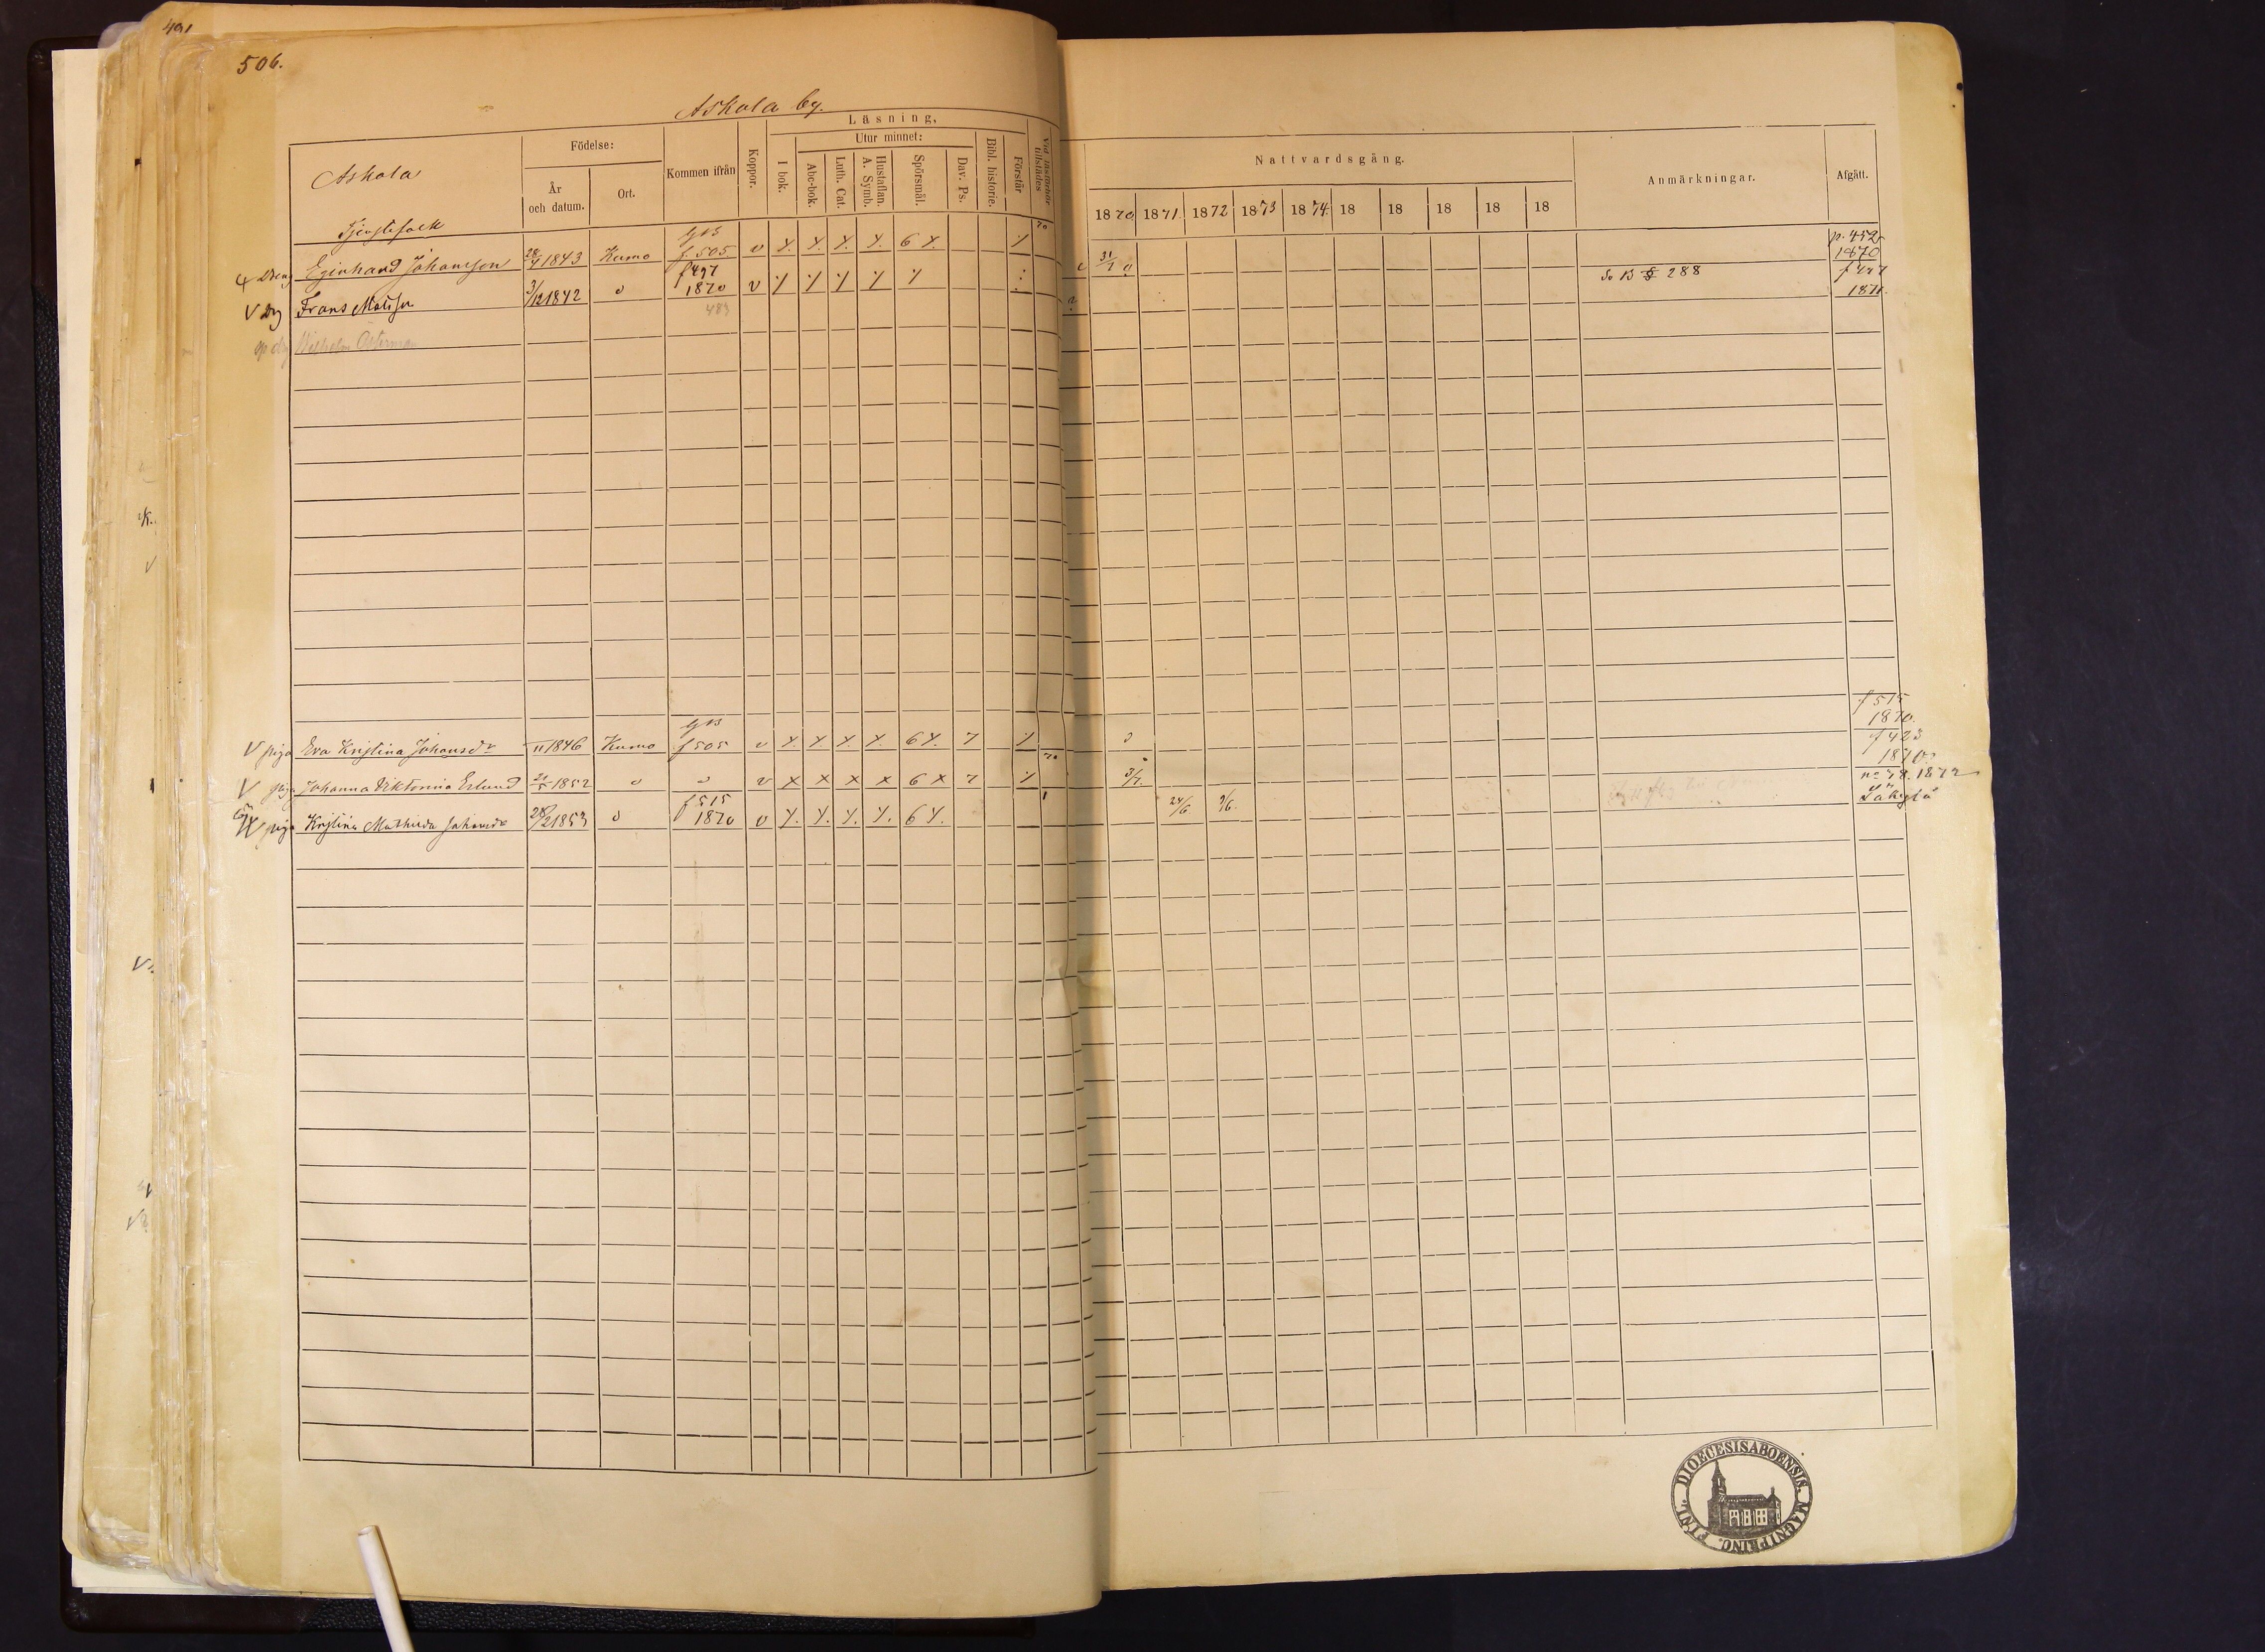 491
506.
Askola by.
Läsning,
Födelse:
Kommen ifrån
Koppor.
I bok.
Utur minnet:
Abc-bok.
Luth. Cat.
Hustaflan. A. Symb.
Spörsmål.
Dav. Ps.
Bibl. historie.
Förstår
Askola
År och datum.
Ort.
Nattvardsgång.
Anmärkningar.
Afgått.
1870 1871 1872 1873 1874 18 18 18 18 18
Tjenstefolk
Dreng Eginhard Johansson 28/4 1843 Kumo f. 505 v 6 31/1 p. 452 1870
V Dg Frans Matsson 3/12 1842 f 497 1870 v So B § 288 f 497 1871.
483
Wilhelm Österman
V piga Eva Kristina Johansdr 11 1846 Kumo f 505 v 6 7 f 515 1870.
V piga Johanna Viktorina Erlund 21/5 1852 v 6 7 3/7. f 423 1870
piga Kristina Mathilda Johansdr 28/2 1853 f 515 1870 v 6 24/6 9/6. no 48. 1872 Säkylä
DIOECESIS ABOENSIS. MAGNI PRINC. FINL.